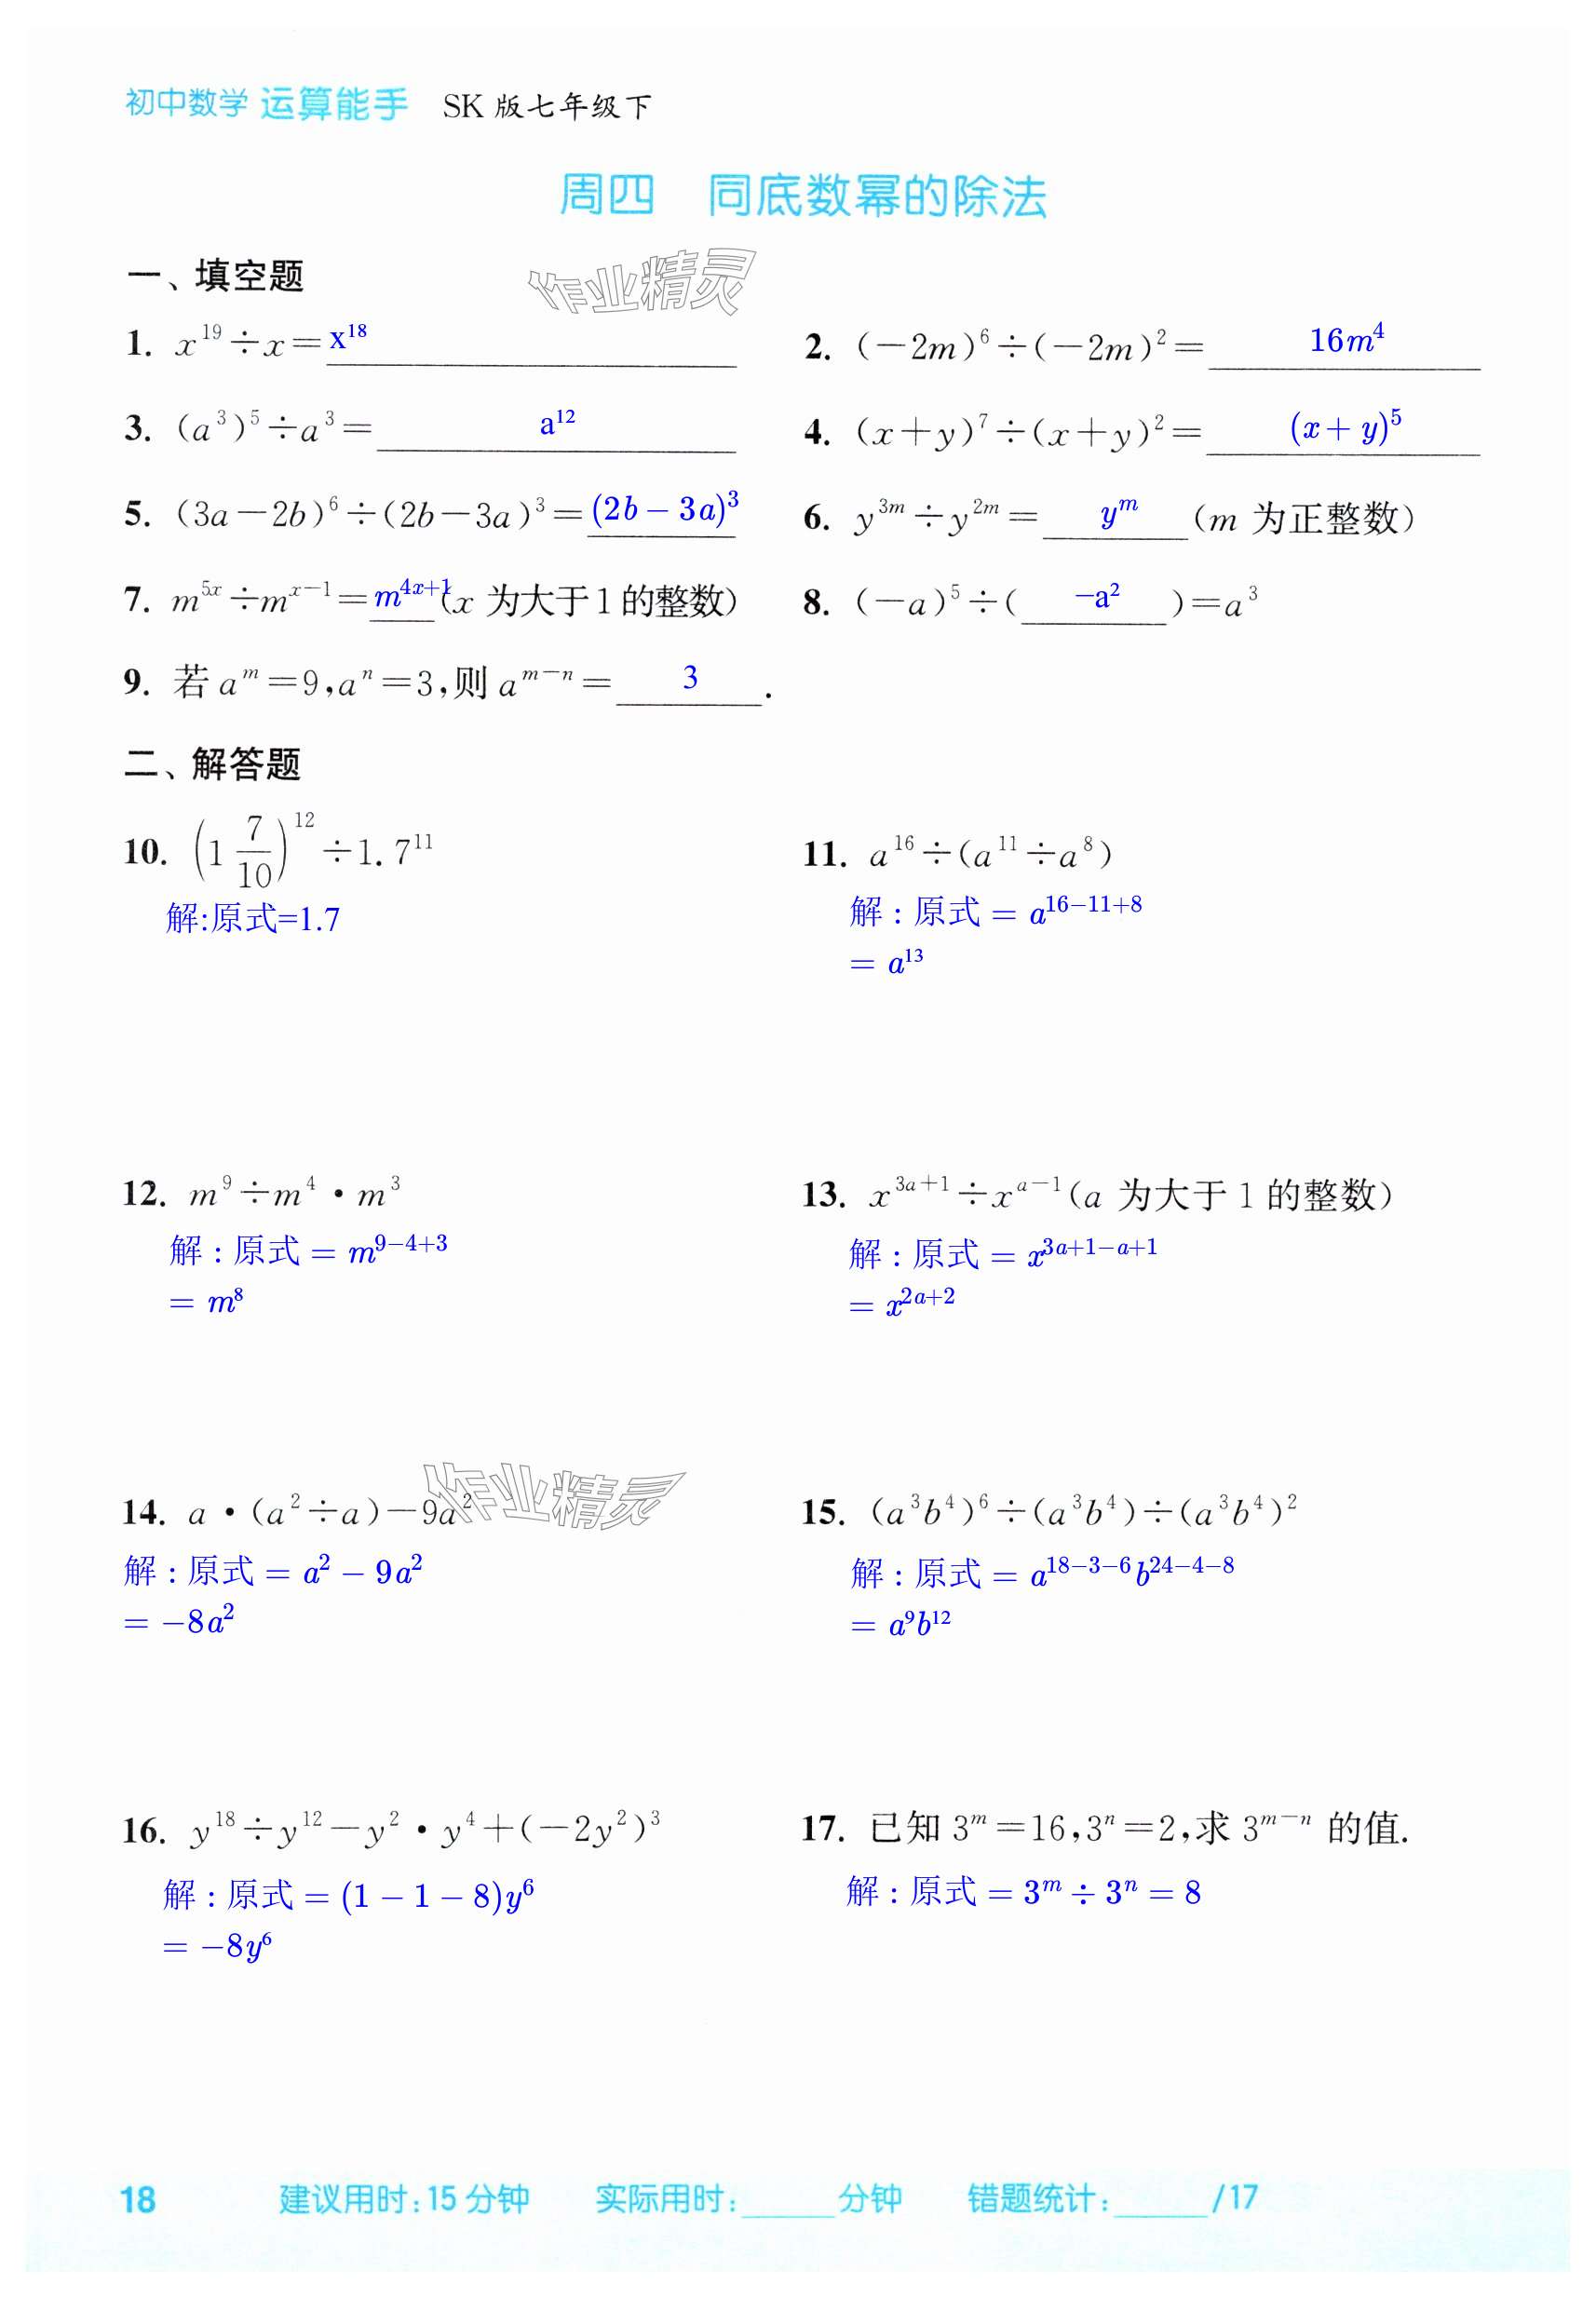 初中数学 运算能手 SK 版七年级下
周四 同底数幂的除法
一、填空题
作业精灵
1. x¹⁹÷x=x¹⁸
2. (−2m)⁶÷(−2m)²=16m⁴
3. (a³)⁵÷a³=a¹²
4. (x+y)⁷÷(x+y)²=(x+y)⁵
5. (3a−2b)⁶÷(2b−3a)³=(2b−3a)³
6. y³ᵐ÷y²ᵐ=yᵐ(m 为正整数)
7. m⁵ˣ÷mˣ⁻¹=m⁴ˣ⁺¹(x 为大于1的整数)
8. (−a)⁵÷(−a²)=a³
9. 若 aᵐ=9,aⁿ=3,则 aᵐ⁻ⁿ=3.
二、解答题
10. (1 7/10)¹²÷1.7¹¹
解:原式=1.7
11. a¹⁶÷(a¹¹÷a⁸)
解:原式=a¹⁶⁻¹¹⁺⁸
=a¹³
12. m⁹÷m⁴·m³
解:原式=m⁹⁻⁴⁺³
=m⁸
13. x³ᵃ⁺¹÷xᵃ⁻¹(a 为大于 1 的整数)
解:原式=x³ᵃ⁺¹⁻ᵃ⁺¹
=x²ᵃ⁺²
作业精灵
14. a·(a²÷a)−9a²
解:原式=a²−9a²
=−8a²
15. (a³b⁴)⁶÷(a³b⁴)÷(a³b⁴)²
解:原式=a¹⁸⁻³⁻⁶b²⁴⁻⁴⁻⁸
=a⁹b¹²
16. y¹⁸÷y¹²−y²·y⁴+(−2y²)³
解:原式=(1−1−8)y⁶
=−8y⁶
17. 已知 3ᵐ=16,3ⁿ=2,求 3ᵐ⁻ⁿ 的值.
解:原式=3ᵐ÷3ⁿ=8
18 建议用时:15 分钟 实际用时:______分钟 错题统计:______/17